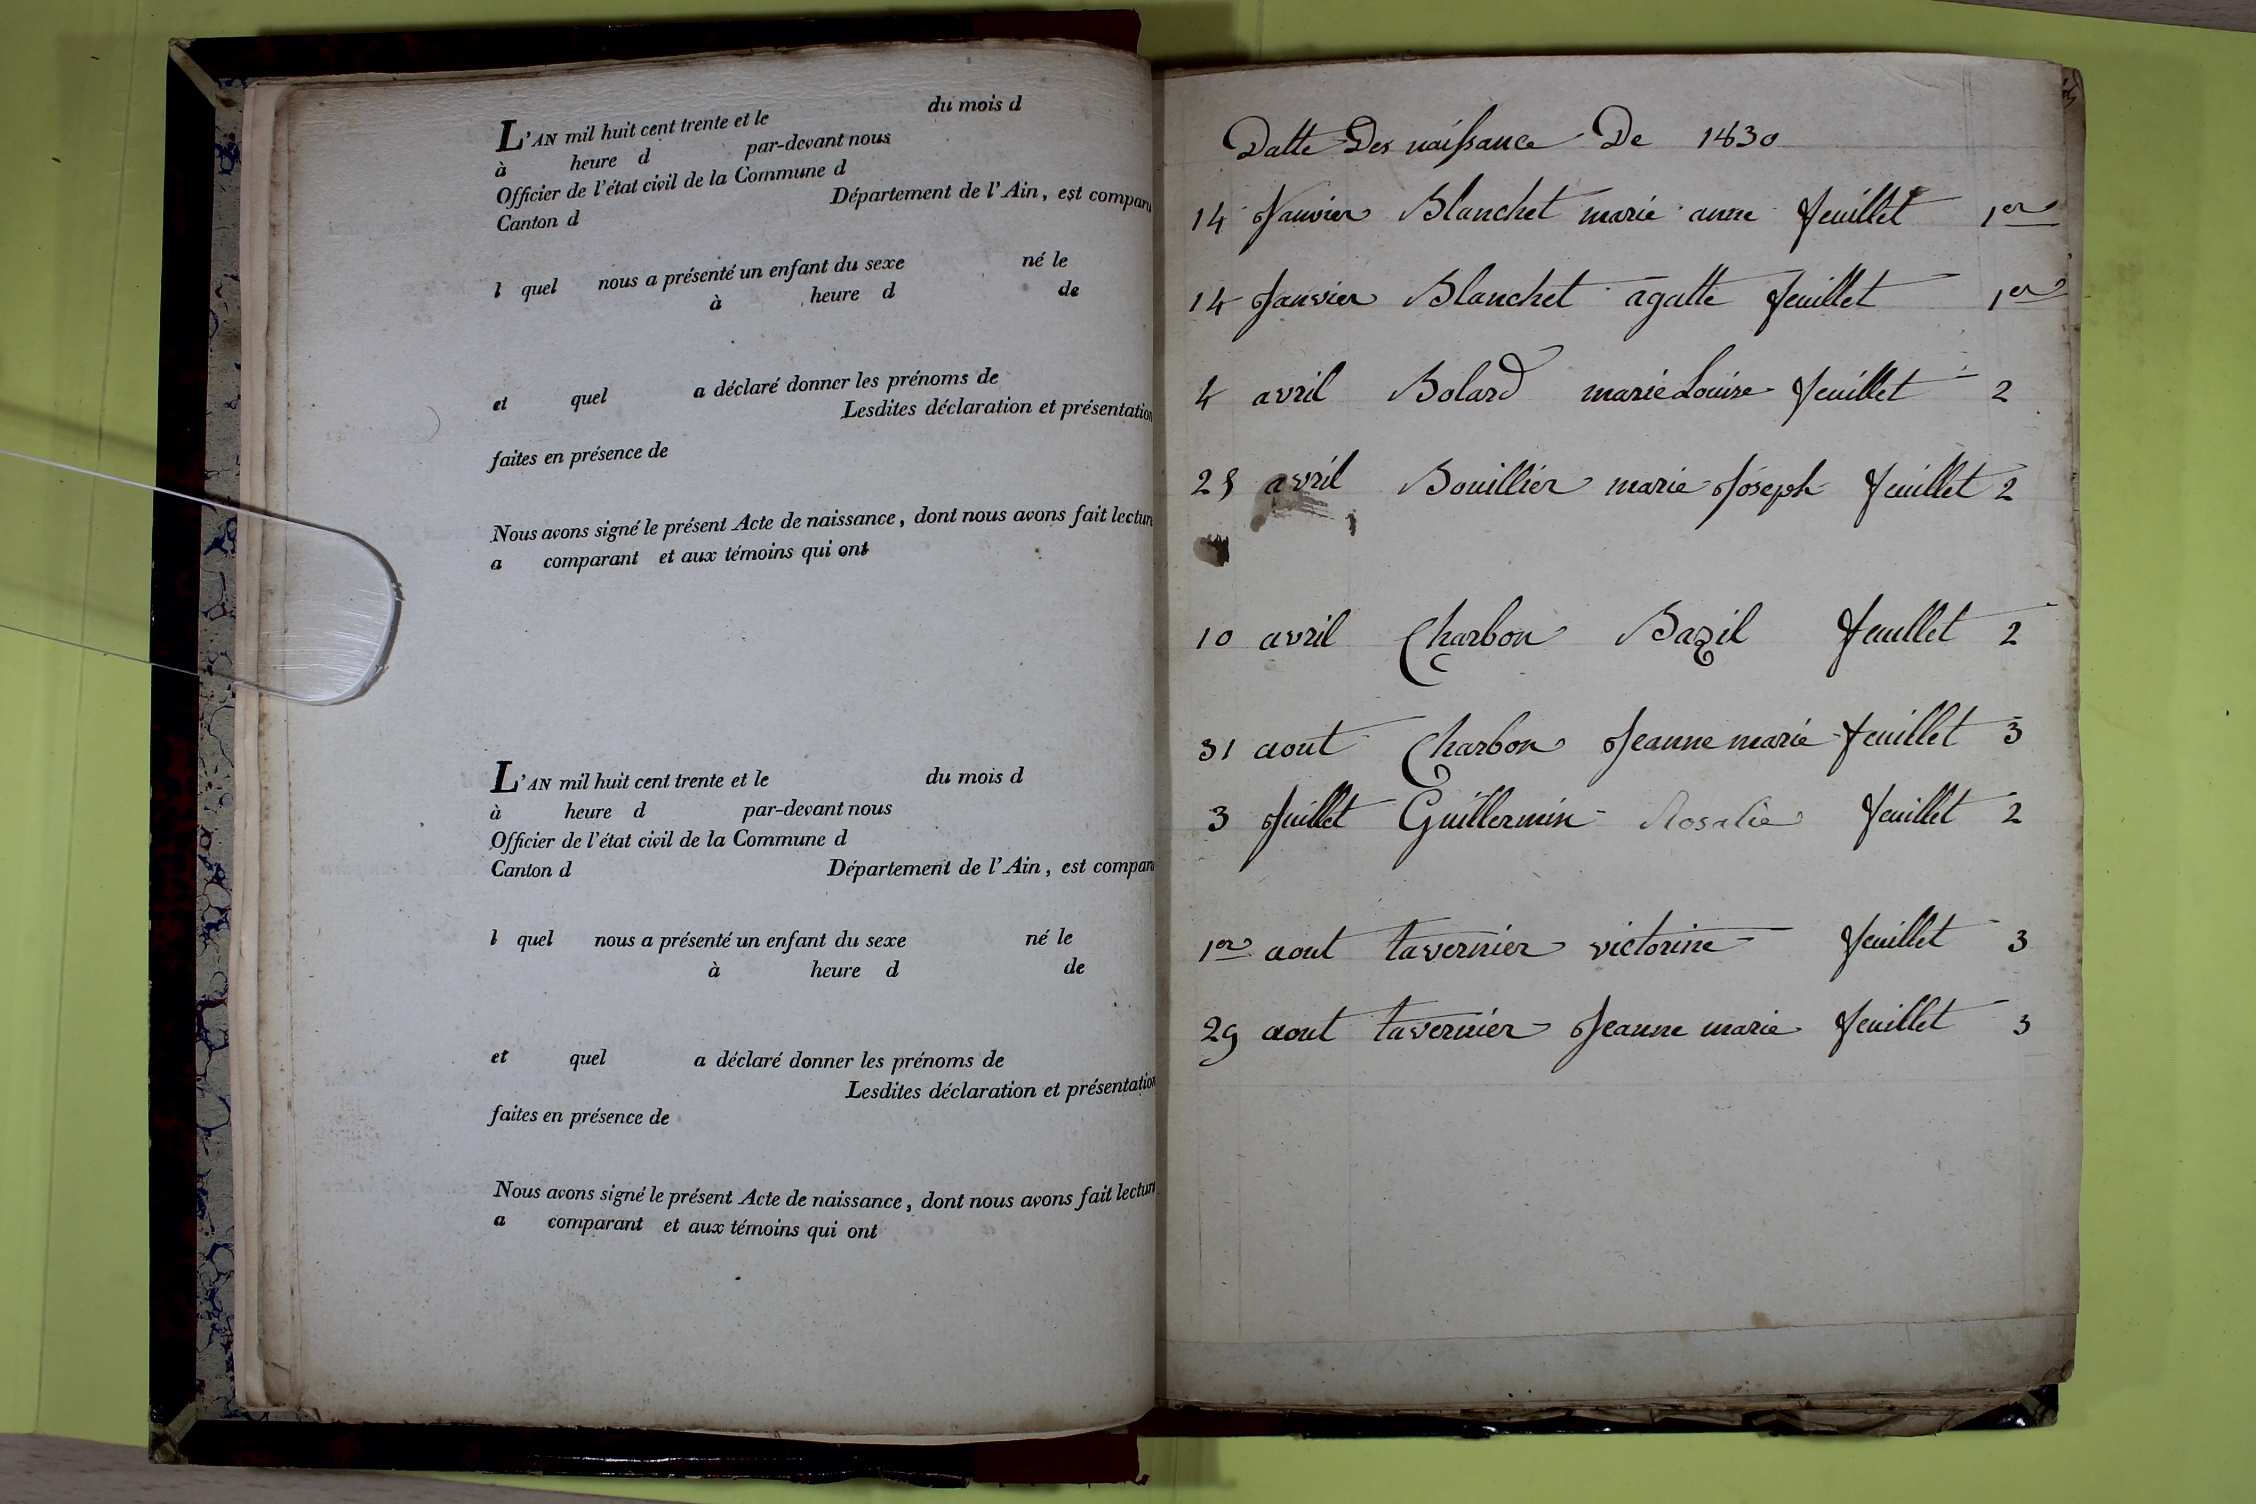 L'AN mil huit cent trente et le du mois d
à heure d par-devant nous
Officier de l'état civil de la Commune d
Canton d Département de l'Ain, est comparu
l quel nous a présenté un enfant du sexe né le
à heure d de
et quel a déclaré donner les prénoms de
Lesdites déclaration et présentation
faites en présence de
Nous avons signé le présent Acte de naissance, dont nous avons fait lecture
a comparant et aux témoins qui ont
L'AN mil huit cent trente et le du mois d
à heure d par-devant nous
Officier de l'état civil de la Commune d
Canton d Département de l'Ain, est comparu
l quel nous a présenté un enfant du sexe né le
à heure d de
et quel a déclaré donner les prénoms de
Lesdites déclaration et présentation
faites en présence de
Nous avons signé le présent Acte de naissance, dont nous avons fait lecture
a comparant et aux témoins qui ont
Datte Des naissance De 1830
14 Janvier Blanchet marie anne feuillet 1er
14 Janvier Blanchet agatte feuillet 1er
4 avril Bolard marie Louise feuillet 2
25 avril Bouillier marie Joseph feuillet 2
10 avril Charbon Bazil feuillet 2
31 aout Charbon Jeanne marie feuillet 3
3 Juillet Guillermin Rosalie feuillet 2
1er aout tavernier victorine feuillet 3
29 aout tavernier Jeanne marie feuillet 3